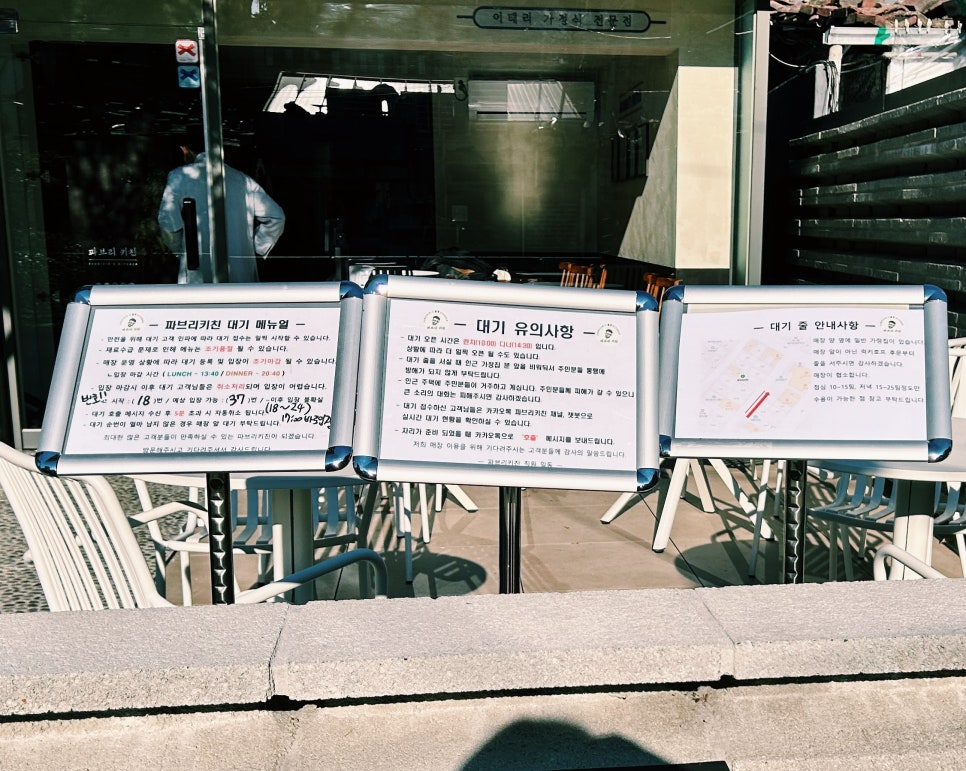 이태리 가정식 전문점
파브리키친
— 파브리키친 대기 메뉴얼 —
- 안전을 위해 대기 고객 인파에 따라 대기 접수는 일찍 시작할 수 있습니다.
- 재료수급 문제로 인해 메뉴는 조기품절 될 수 있습니다.
- 매장 운영 상황에 따라 대기 등록 및 입장이 조기마감 될 수 있습니다.
- 입장 마감 시간 ( LUNCH - 13:40 / DINNER - 20:40 )
- 입장 마감시 이후 대기 고객님들은 취소처리되며 입장이 어렵습니다.
시작 : ( 18 )번 / 예상 입장 가능 : ( 37 )번 / -이후 입장 불확실
(18~24)
- 대기 호출 메시지 수신 후 5분 초과 시 자동취소 됩니다.
17:00
- 대기 순번이 얼마 남지 않은 경우 매장 앞 대기 부탁드립니다.
최대한 많은 고객분들이 만족하실 수 있는 파브리키친이 되겠습니다.
방문해주시고 기다려주셔서 감사드립니다.
— 대기 유의사항 —
- 대기 오픈 시간은 런치(10:00) 디너(14:30) 입니다.
상황에 따라 더 일찍 오픈 될 수도 있습니다.
- 대기 줄을 서실 때 인근 가정집 문 앞을 비워둬서 주민분들 통행에
방해가 되지 않게 부탁드립니다.
- 인근 주택에 주민분들이 거주하고 계십니다. 주민분들께 피해가 갈 수 있으니
큰 소리의 대화는 피해주시면 감사하겠습니다.
- 대기 접수하신 고객님들은 카카오톡 파브리키친 채널, 챗봇으로
실시간 대기 현황을 확인하실 수 있습니다.
- 자리가 준비 되었을 때 카카오톡으로 '호출' 메시지를 보내드립니다.
저희 매장 이용을 위해 기다려주시는 고객분들께 감사의 말씀드립니다.
— 파브리키친 직원 일동 —
— 대기 줄 안내사항 —
매장 양 옆에 일반 가정집이 있습니다.
매장 앞이 아닌 럭키포차 후문부터
줄을 서주시면 감사하겠습니다.
매장이 협소합니다.
점심 10~15팀, 저녁 15~25팀정도만
수용이 가능한 점 참고 부탁드립니다.